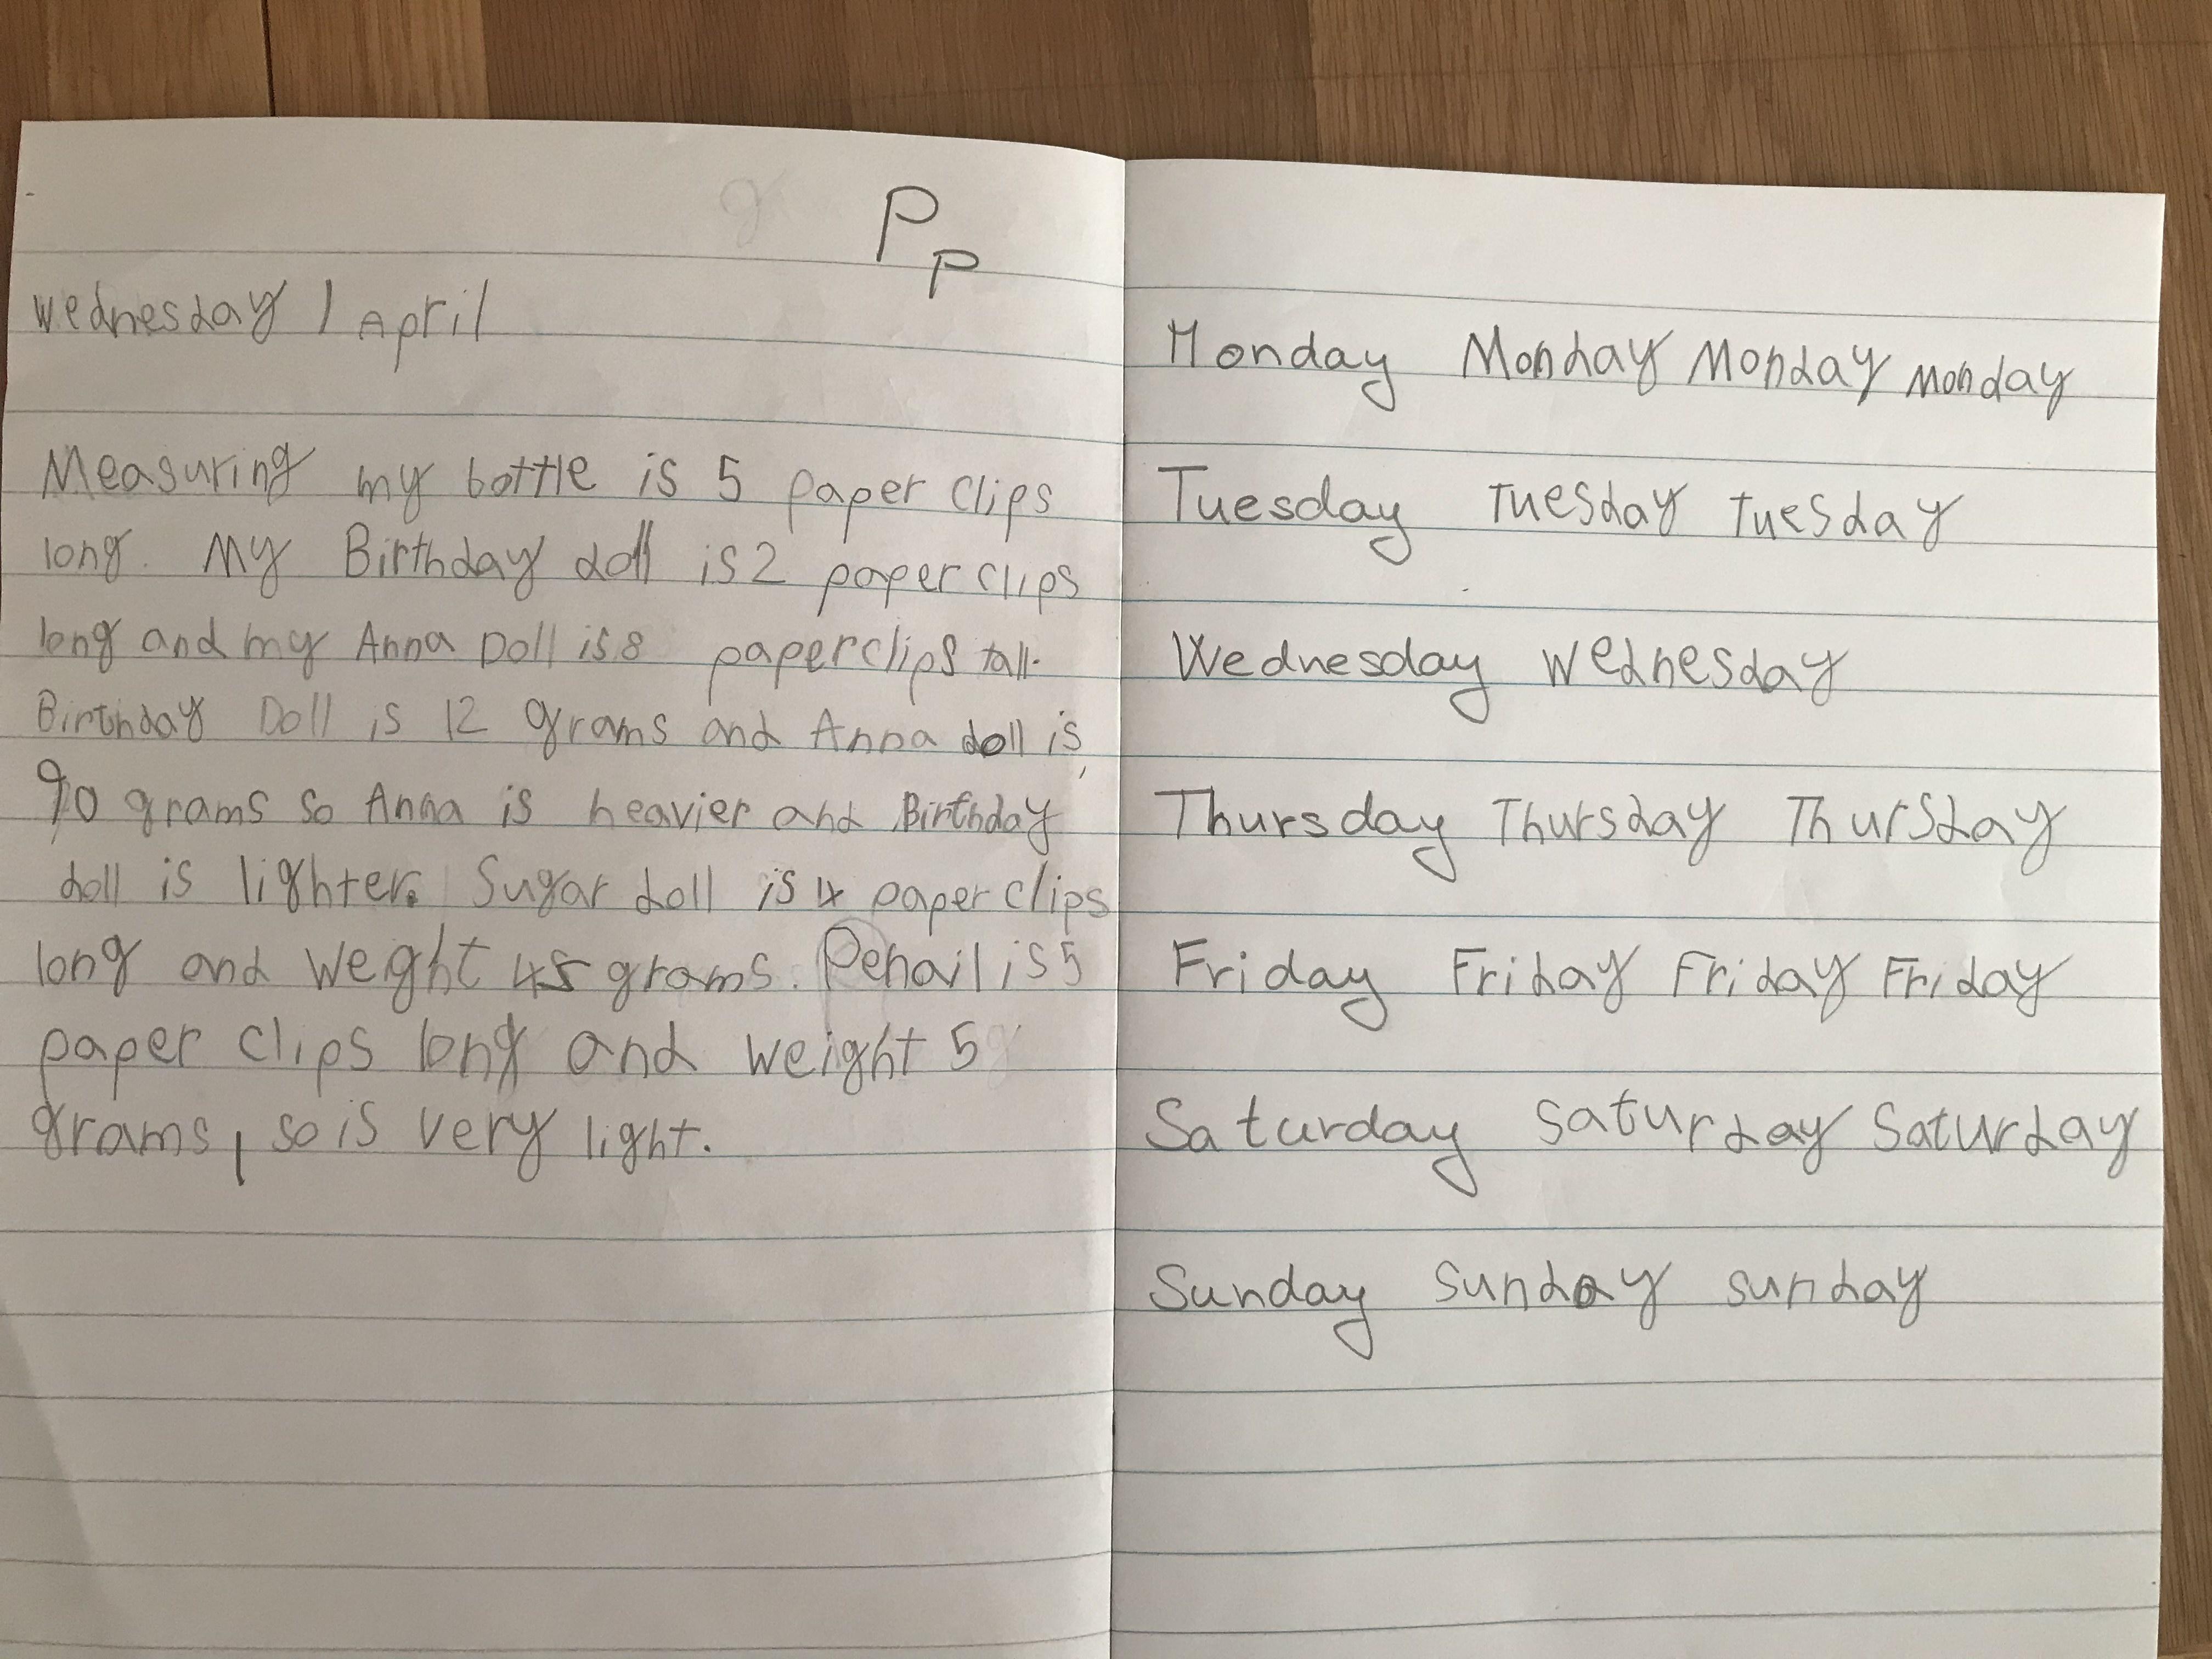 P
p
wednesday 1 April
Measuring my bottle is 5 paper clips
long. My Birthday doll is 2 paper clips
long and my Anna Doll is 8 paperclips tall.
Birthday Doll is 12 grams and Anna doll is
90 grams so Anna is heavier and Birthday
doll is lighter. Sugar doll is 4 paper clips
long and weght 45 grams. Penail is 5
paper clips long and weight 5
grams, so is very light.
Monday Monday Monday Monday
Tuesday Tuesday Tuesday
Wednesday Wednesday
Thursday Thursday Thursday
Friday Friday Friday Friday
Saturday Saturday Saturday
Sunday Sunday Sunday